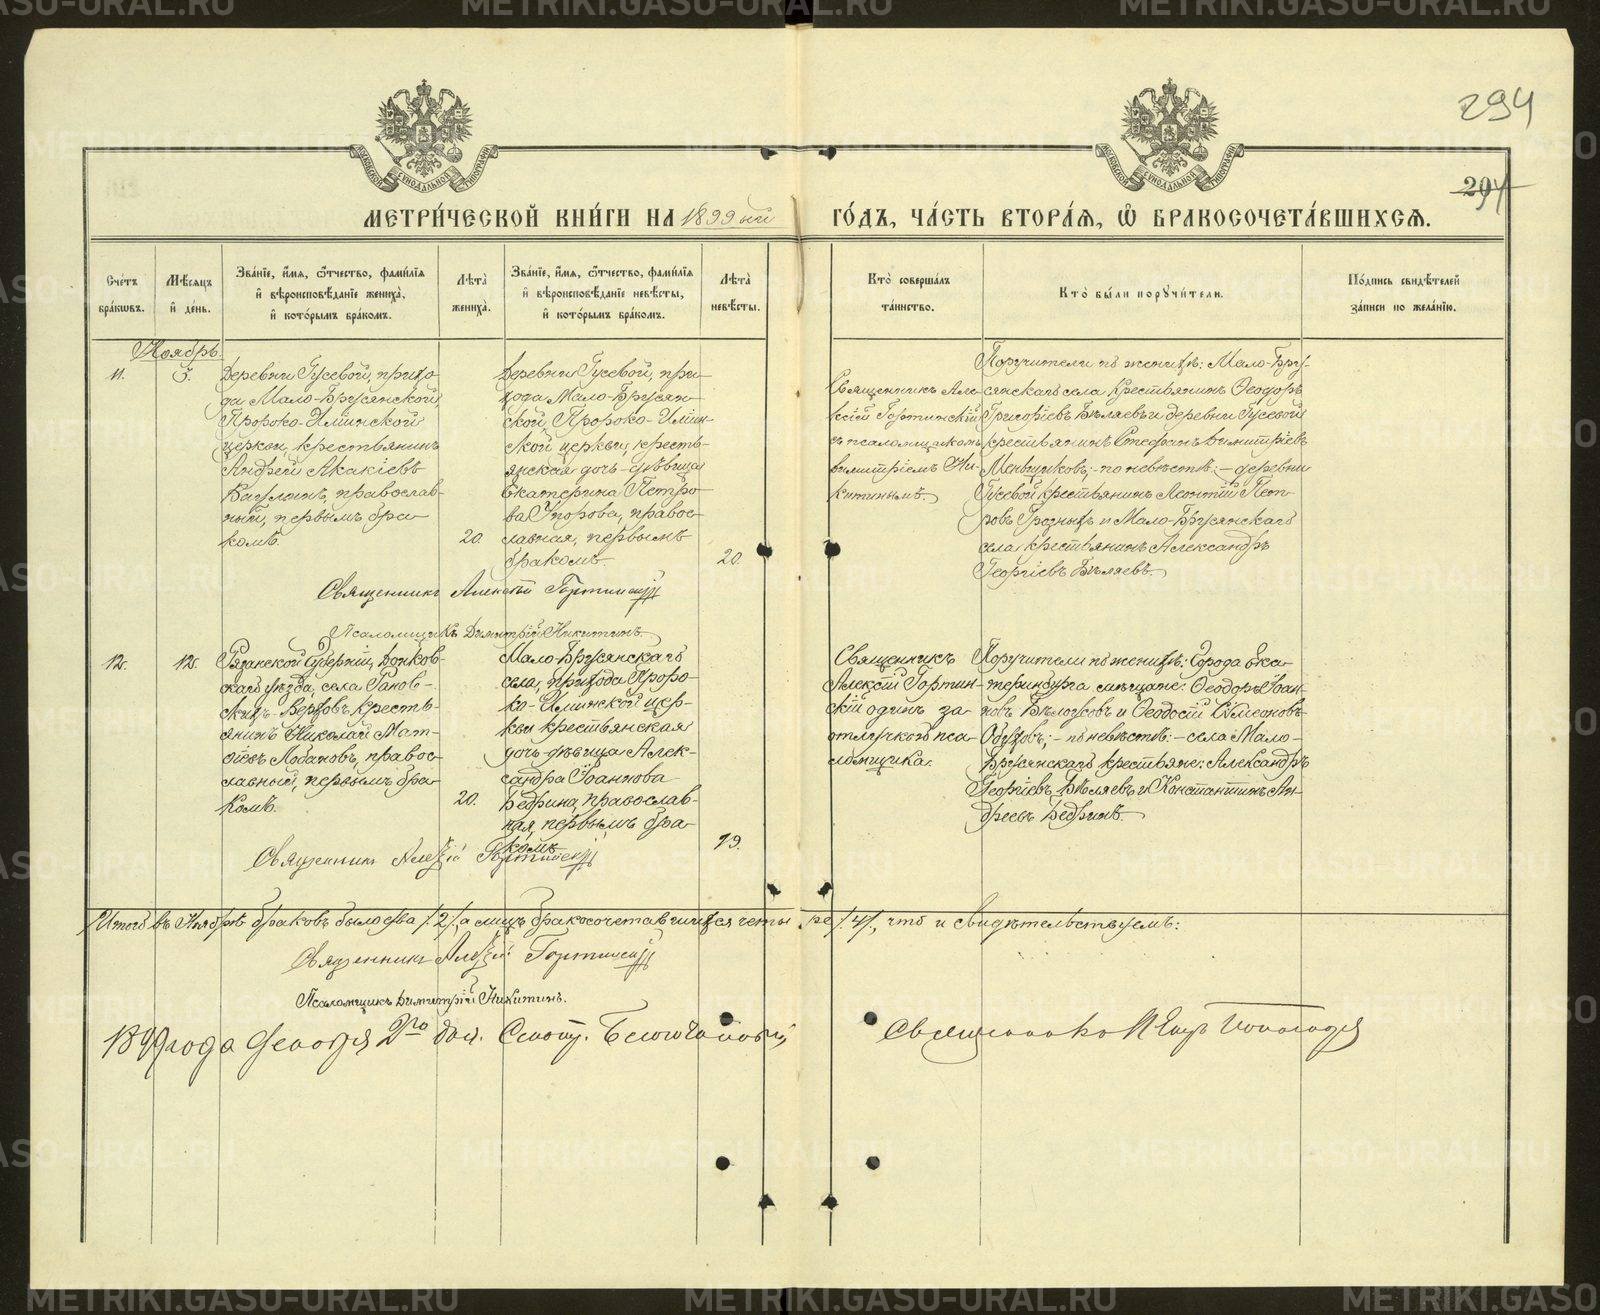 294
294
МЕТРИ́ЧЕСКОЙ КНИ́ГИ НА 1899 ый ГО́ДЪ, ЧА́СТЬ ВТОРА́Я, Ѽ БРАКОСОЧЕТА́ВШИХСЯ.
Сче́тъ бра́кѡвъ.
Мѣ́сяцъ и҆ де́нь.
Зва́нїе, и҆́мя, ѻ҆́тчество, фами́лїя и҆ вѣроисповѣ́данїе жениха̀, и҆ кото́рымъ бра́комъ.
Лѣта̀ жениха̀.
Зва́нїе, и҆́мя, ѻ҆́тчество, фами́лїя и҆ вѣроисповѣ́данїе невѣ́сты, и҆ кото́рымъ бра́комъ.
Лѣта̀ невѣ́сты.
Кто̀ соверша́лъ та́инство.
Кто̀ бы́ли порꙋчи́тели.
По́дпись свидѣ́телей за́писи по жела́нїю.
Ноябрь
11.
5.
Деревни Гусевой, прихо-
да Мало-Брусянской,
Пророко-Илiинской
церкви, крестьянинъ
Андрей Акакiевъ
православ-
ный, первымъ бра-
комъ.
20.
Деревни Гусевой, при-
хода Мало-Брусян-
ской, Пророко-Илiин-
ской церкви, кресть-
янская дочь-дѣвица
Екатерина Петро-
ва правос-
лавная, первымъ
бракомъ.
20.
Священникъ Але-
ксiй Гортинскiй
съ псаломщикомъ
Димитрiемъ Ни-
китинымъ.
Поручители по женихѣ: Мало-Бру-
сянскаго села крестьянинъ Ѳеодоръ
Григорiевъ Бѣляевъ и деревни Гусевой
крестьянинъ Стефанъ Димитрiевъ
Меньщиковъ; - по невѣстѣ: - деревни
Гусевой крестьянинъ Леонтiй Пет-
ровъ Грозныхъ и Мало-Брусянскаго
села, крестьянинъ Александръ
Георгiевъ Бѣляевъ.
Священникъ Алексiй Гортинскiй
Псаломщикъ Димитрiй Никитинъ.
12.
12.
Рязанской Губернiи, Донков-
скаго уѣзда, села Ранов-
скихъ-Верховъ кресть-
янинъ Николай Мат-
ѳiевъ Лобановъ, правос-
лавный, первымъ бра-
комъ.
20.
Мало-Брусянскаго
села, прихода Проро-
ко-Илiинской цер-
кви крестьянская
дочь-дѣвица Алек-
сандра Иванова
Бедрина, православ-
ная, первымъ бра-
комъ
19.
Священникъ
Алексiй Гортин-
скiй одинъ за
отлучкою пса-
ломщика.
Поручители по женихѣ: Города Ека-
теринбурга мѣщане: Ѳеодоръ Иван-
овъ Бѣлоусовъ и Ѳеодосiй Сѵмеоновъ
Обуховъ; - по невѣстѣ: - села Мало-
Брусянскаго крестьяне: Александръ
Георгiевъ Бѣляевъ и Константинъ Ан-
дреевъ Бедринъ.
Священникъ Алексiй Гортинскiй
Итого въ Ноябрѣ браковъ было два /2/, а лицъ бракосочетавшихся четы ре /4/, что и свидѣтельствуемъ:
Священникъ Алексiй Гортинскiй
Псаломщикъ Димитрiй Никитинъ.
1899 года Декабря 2го дня.
Священникъ